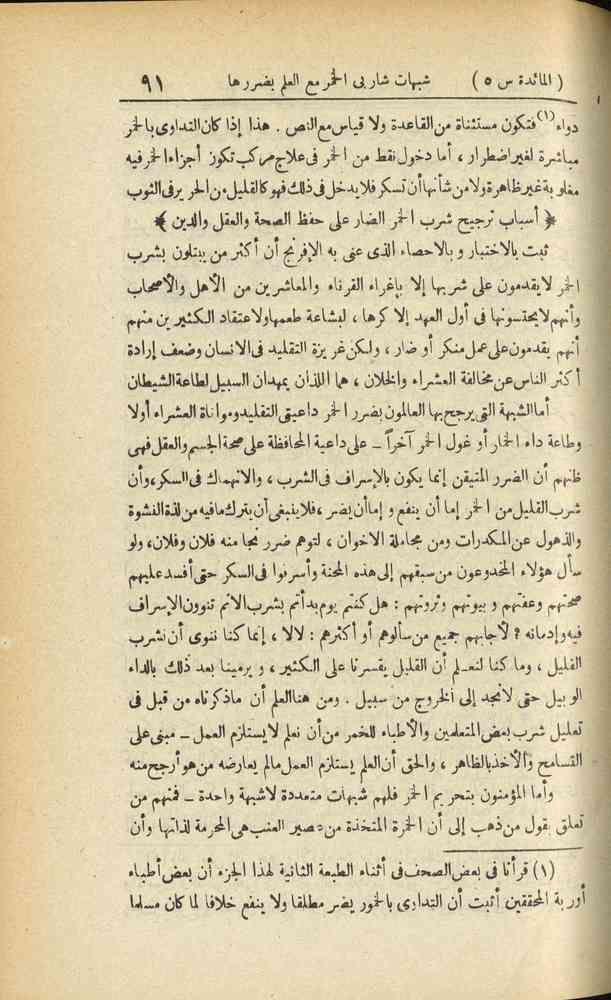 ( المائدة س ٥ ) شبهات شاربى الخمر مع العلم بضررها ٩١
دواء (١) فتكون مستثناة من القاعدة ولا قياس مع النص . هذا إذا كان التداوى بالخمر
مباشرة لغير اضطرار ، أما دخول نقط من الخمر فى علاج مركب تكون أجزاء الخمر فيه
مغلوبة غير ظاهرة ولا من شأنها أن تسكر فلا يدخل فى ذلك فهو كالقليل من الحرير فى الثوب
﴿ أسباب ترجيح شرب الخمر الضار على حفظ الصحة والعقل والدين ﴾
ثبت بالاختبار وبالاحصاء الذى عنى به الإفرنج أن أكثر من يبتلون بشرب
الخمر لا يقدمون على شربها إلا بإغراء القرناء والمعاشرين من الأهل والأصحاب
وأنهم لا يحتسونها فى أول العهد إلا كرها ، لبشاعة طعمها ولاعتقاد الكثيرين منهم
أنهم يقدمون على عمل منكر أو ضار ، ولكن غريزة التقليد فى الانسان وضعف إرادة
أكثر الناس عن مخالفة العشراء والخلان ، هما اللذان يمهدان السبيل لطاعة الشيطان
أما الشبهة التى يرجح بها العالمون بضرر الخمر داعيتى التقليد ومواتاة العشراء أولا
وطاعة داء الخمار أو غول الخمر آخراً ــ على داعية المحافظة على صحة الجسم والعقل فهى
ظنهم أن الضرر المتيقن إنما يكون بالإسراف فى الشرب ، والانهماك فى السكر ، وأن
شرب القليل من الخمر إما أن ينفع و إما أن يضر ، فلا ينبغى أن يترك مافيه من لذة النشوة
والذهول عن المكدرات ومن مجاملة الاخوان ، لتوهم ضرر نجا منه فلان وفلان، ولو
سأل هؤلاء المخدوعون من سبقهم إلى هذه المحنة وأسرفوا فى السكر حتى أفسد عليهم
صحتهم وعفتهم و بيوتهم وثروتهم : هل كنتم يوم بدأتم بشرب الاثم تنوون الإسراف
فيه وإدمانه ؟ لأجابهم جميع من سألوهم أو أكثرهم : لالا ، إنما كنا ننوى أن نشرب
القليل ، وما كنا لنعلم أن القليل يقسرنا على الكثير ، و يرمينا بعد ذلك بالداء
الوبيل حتى لا نجد إلى الخروج من سبيل . ومن هنا العلم أن ماذكرناه من قبل فى
تعليل شرب بعض المتعلمين والأطباء للخمر من أن نعلم لا يستلزم العمل ــ مبنى على
التسامح والأخذ بالظاهر ، والحق أن العلم يستلزم العمل مالم يعارضه من هو أرجح منه
وأما المؤمنون بتحريم الخمر فلهم شبهات متعددة لاشبهة واحدة ــ فمنهم من
تعلق بقول من ذهب إلى أن الخمرة المتخذة من عصير العنب هى المحرمة لذاتها وأن
(١) قرأنا فى بعض الصحف فى أثناء الطبعة الثانية لهذا الجزء أن بعض أطباء
أوربة المحققين أثبت أن التداوى بالخمور يضر مطلقا ولا ينفع خلافا لما كان مسلما